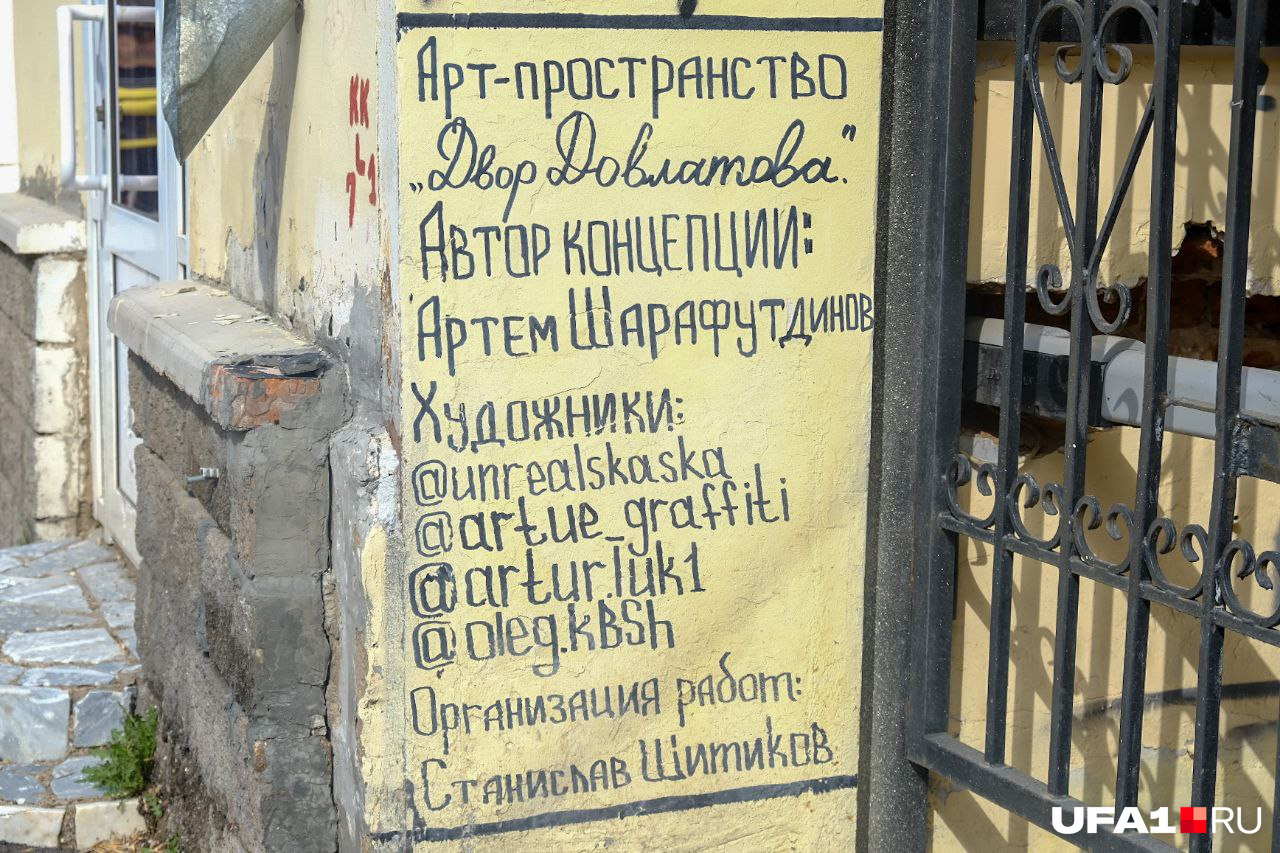 Арт-пространство
„Двор Довлатова."
Автор концепции:
Артем Шарафутдинов
Художники:
@unrealskaska
@artue_graffiti
@artur.luk1
@oleg.kBSh
Организация работ:
Станислав Шитиков.
КК
UFA1.RU